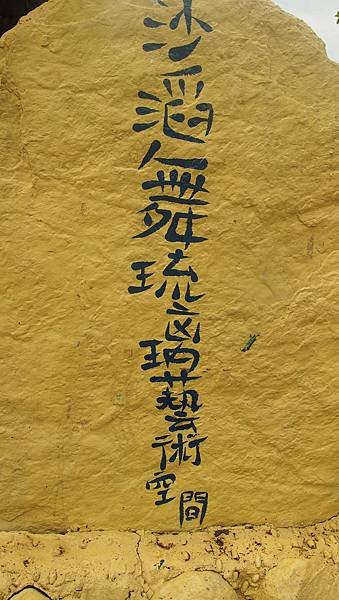 沙滔人舞琉璃藝術空間